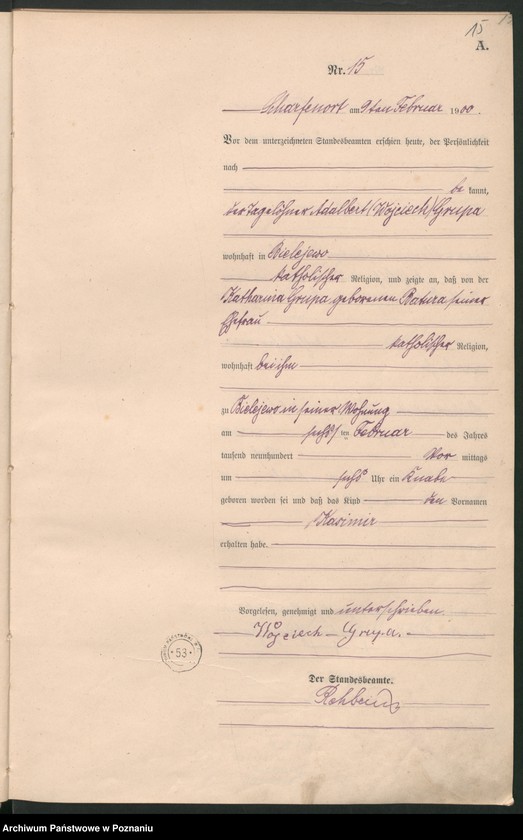 15
A.
Nr. 15
Scharfenort am 9ten Februar 1900.
Vor dem unterzeichneten Standesbeamten erschien heute, der Persönlichkeit
nach
be kannt,
der Tagelöhner Adalbert (Wojciech) Grupa
wohnhaft in Bielejewo
katholischer Religion, und zeigte an, daß von der
Katharina Grupa geborenen Batura seiner
Ehefrau
katholischer Religion,
wohnhaft bei ihm
zu Bielejewo in seiner Wohnung
am sechsten Februar des Jahres
tausend neunhundert Vor mittags
um sechs Uhr ein Knabe
geboren worden sei und daß das Kind den Vornamen
Kasimir
erhalten habe.
Vorgelesen, genehmigt und unterschrieben.
Wojciech Grupa.
53
Der Standesbeamte.
Rehbein
Archiwum Państwowe w Poznaniu